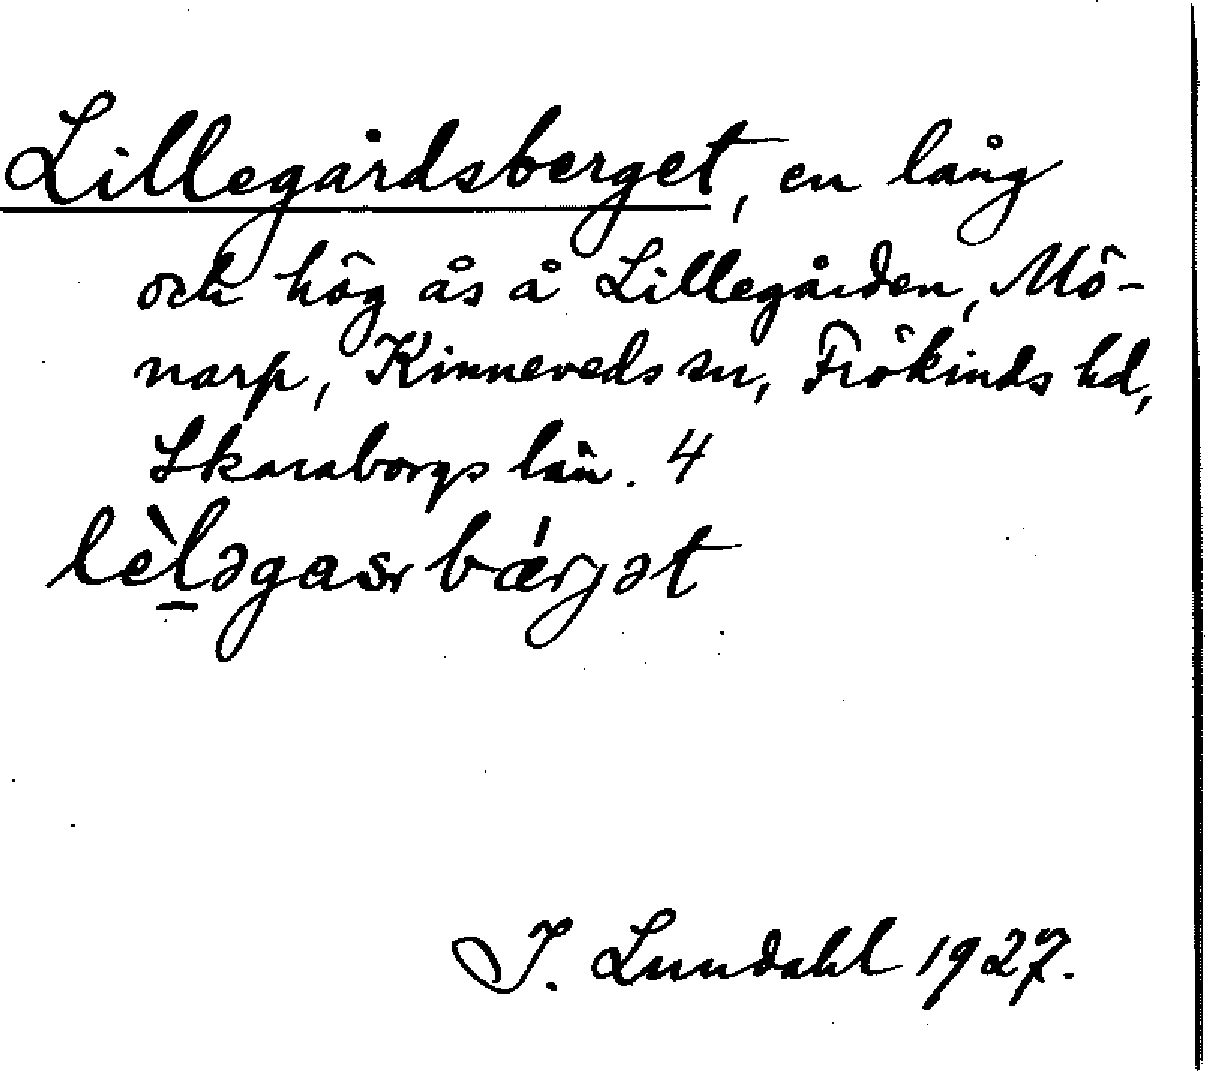 Lillegårdsberget, en lång
och hög ås å Lillegården, Mö-
narp, Kinneveds sn, Frökinds hd,
Skaraborgs län. 4
I. Lundahl 1927.